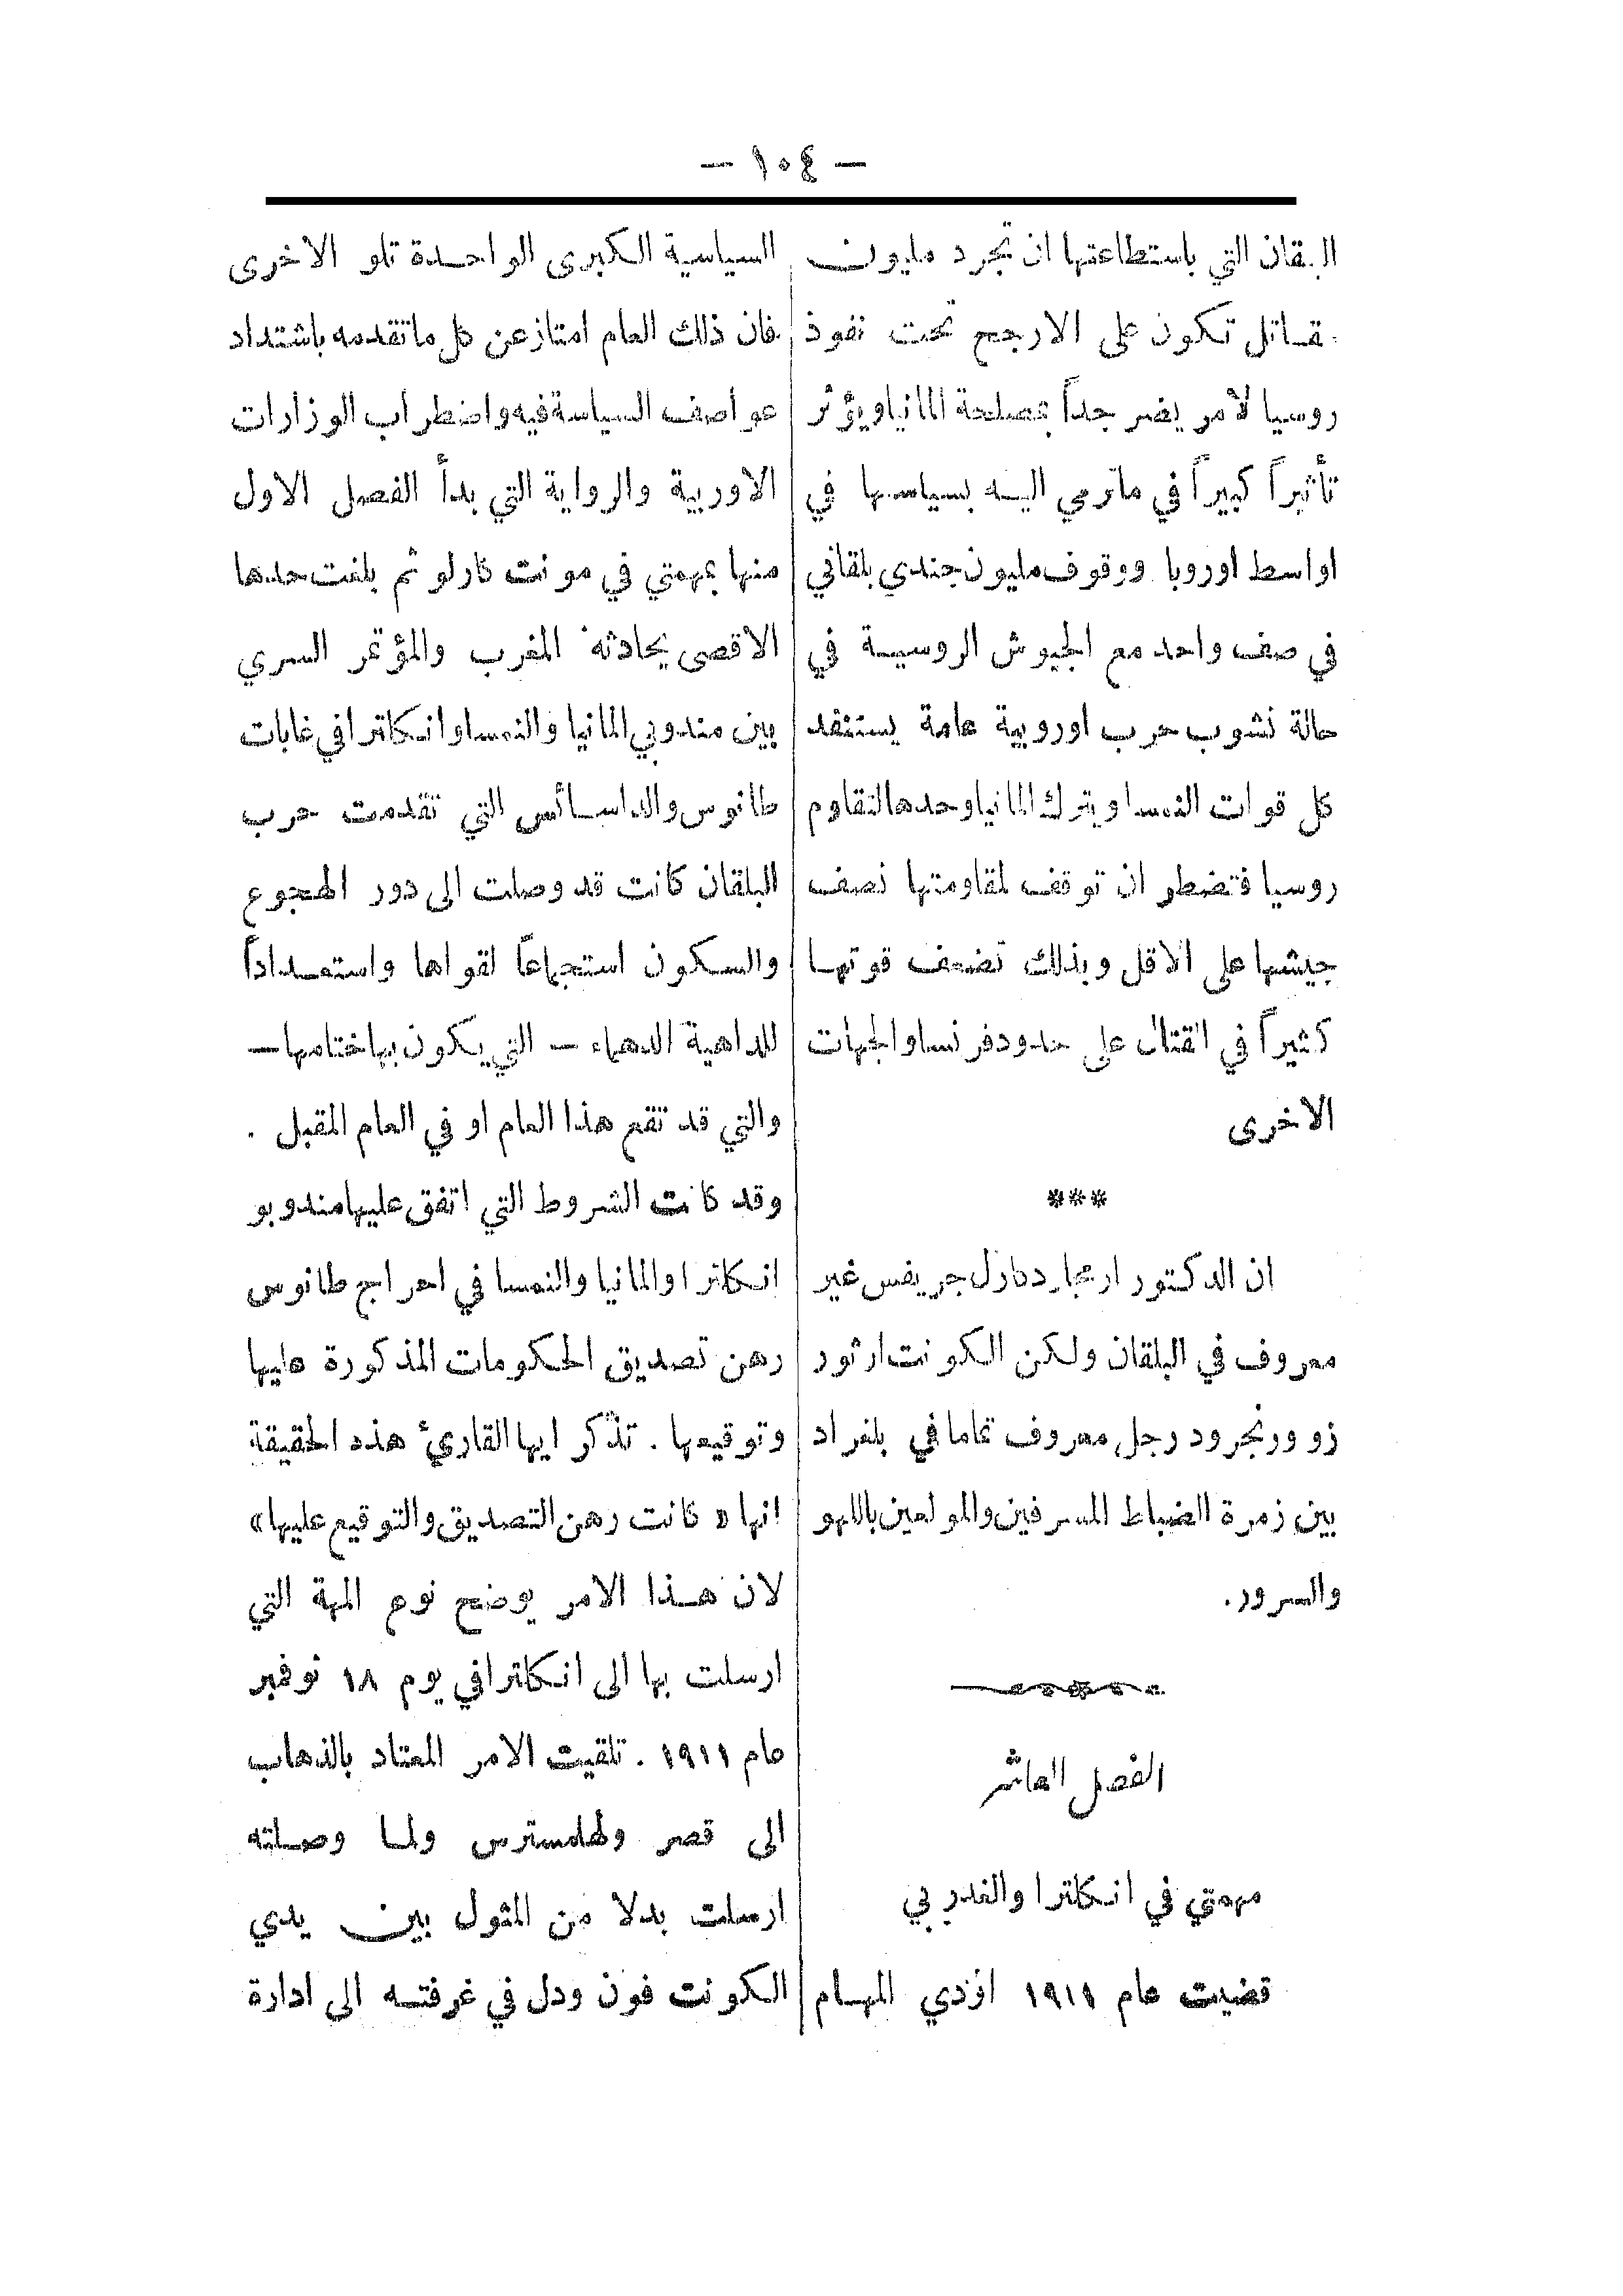 — ١٠٤ —
البلقان التي باستطاعتها ان تجرد مليون
مقاتل تكون على الارجح تحت نفوذ
روسيا لامر يضر جداً بمصلحة المانيا ويؤثر
تأثيراً كبيراً في ماترمي اليه بسياستها في
اواسط اوروبا ووقوف مليون جندي بلقاني
في صف واحد مع الجيوش الروسية في
حالة نشوب حرب اوروبية عامة يستنفد
كل قوات النمسا ويترك المانيا وحدها لتقاوم
روسيا فتضطر ان توقف لمقاومتها نصف
جيشها على الاقل وبذلك تضعف قوتها
كثيراً في القتال على حدود فرنسا والجهات
الاخرى
***
ان الدكتور ارمجارد كارل جريفس غير
معروف في البلقان ولكن الكونت ارثور
زو ورنجرود رجل معروف تماما في بلغراد
بين زمرة الضباط المسرفين والمولعين باللهو
والسرور.
الفصل العاشر
مهمتي في انكلترا والغدر بي
قضيت عام ١٩١١ اؤدي المهام
السياسية الكبرى الواحدة تلو الاخرى
فان ذلك العام امتاز عن كل ماتقدمه باشتداد
عواصف السياسة فيه واضطراب الوزارات
الاوربية والرواية التي بدأ الفصل الاول
منها بمهمتي في مونت كارلو ثم بلغت حدها
الاقصى بحادثة المغرب والمؤتمر السري
بين مندوبي المانيا والنمسا وانكلترا في غابات
طانوس والدسائس التي تقدمت حرب
البلقان كانت قد وصلت الى دور الهجوع
والسكون استجماعاً لقواها واستعداداً
للداهية الدهياء — التي يكون بها ختامها —
والتي قد تقع هذا العام او في العام المقبل .
وقد كانت الشروط التي اتفق عليها مندوبو
انكلترا والمانيا والنمسا في احراج طانوس
رهن تصديق الحكومات المذكورة عليها
وتوقيعها . تذكر ايها القارئ هذه الحقيقة
انها « كانت رهن التصديق والتوقيع عليها »
لان هذا الامر يوضح نوع المهمة التي
ارسلت بها الى انكلترا في يوم ١٨ نوفمبر
عام ١٩١١ . تلقيت الامر المعتاد بالذهاب
الى قصر ولهلمسترس ولما وصلته
ارسلت بدلا من المثول بين يدي
الكونت فون ودل في غرفته الى ادارة